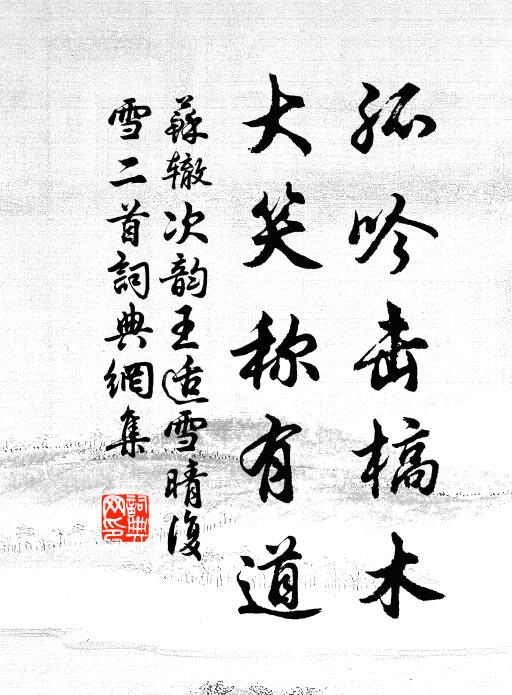 孤吟击槁木
大笑称有道
蘇辙次韵王适雪晴復
雪二首詞典網集
詞典
网印